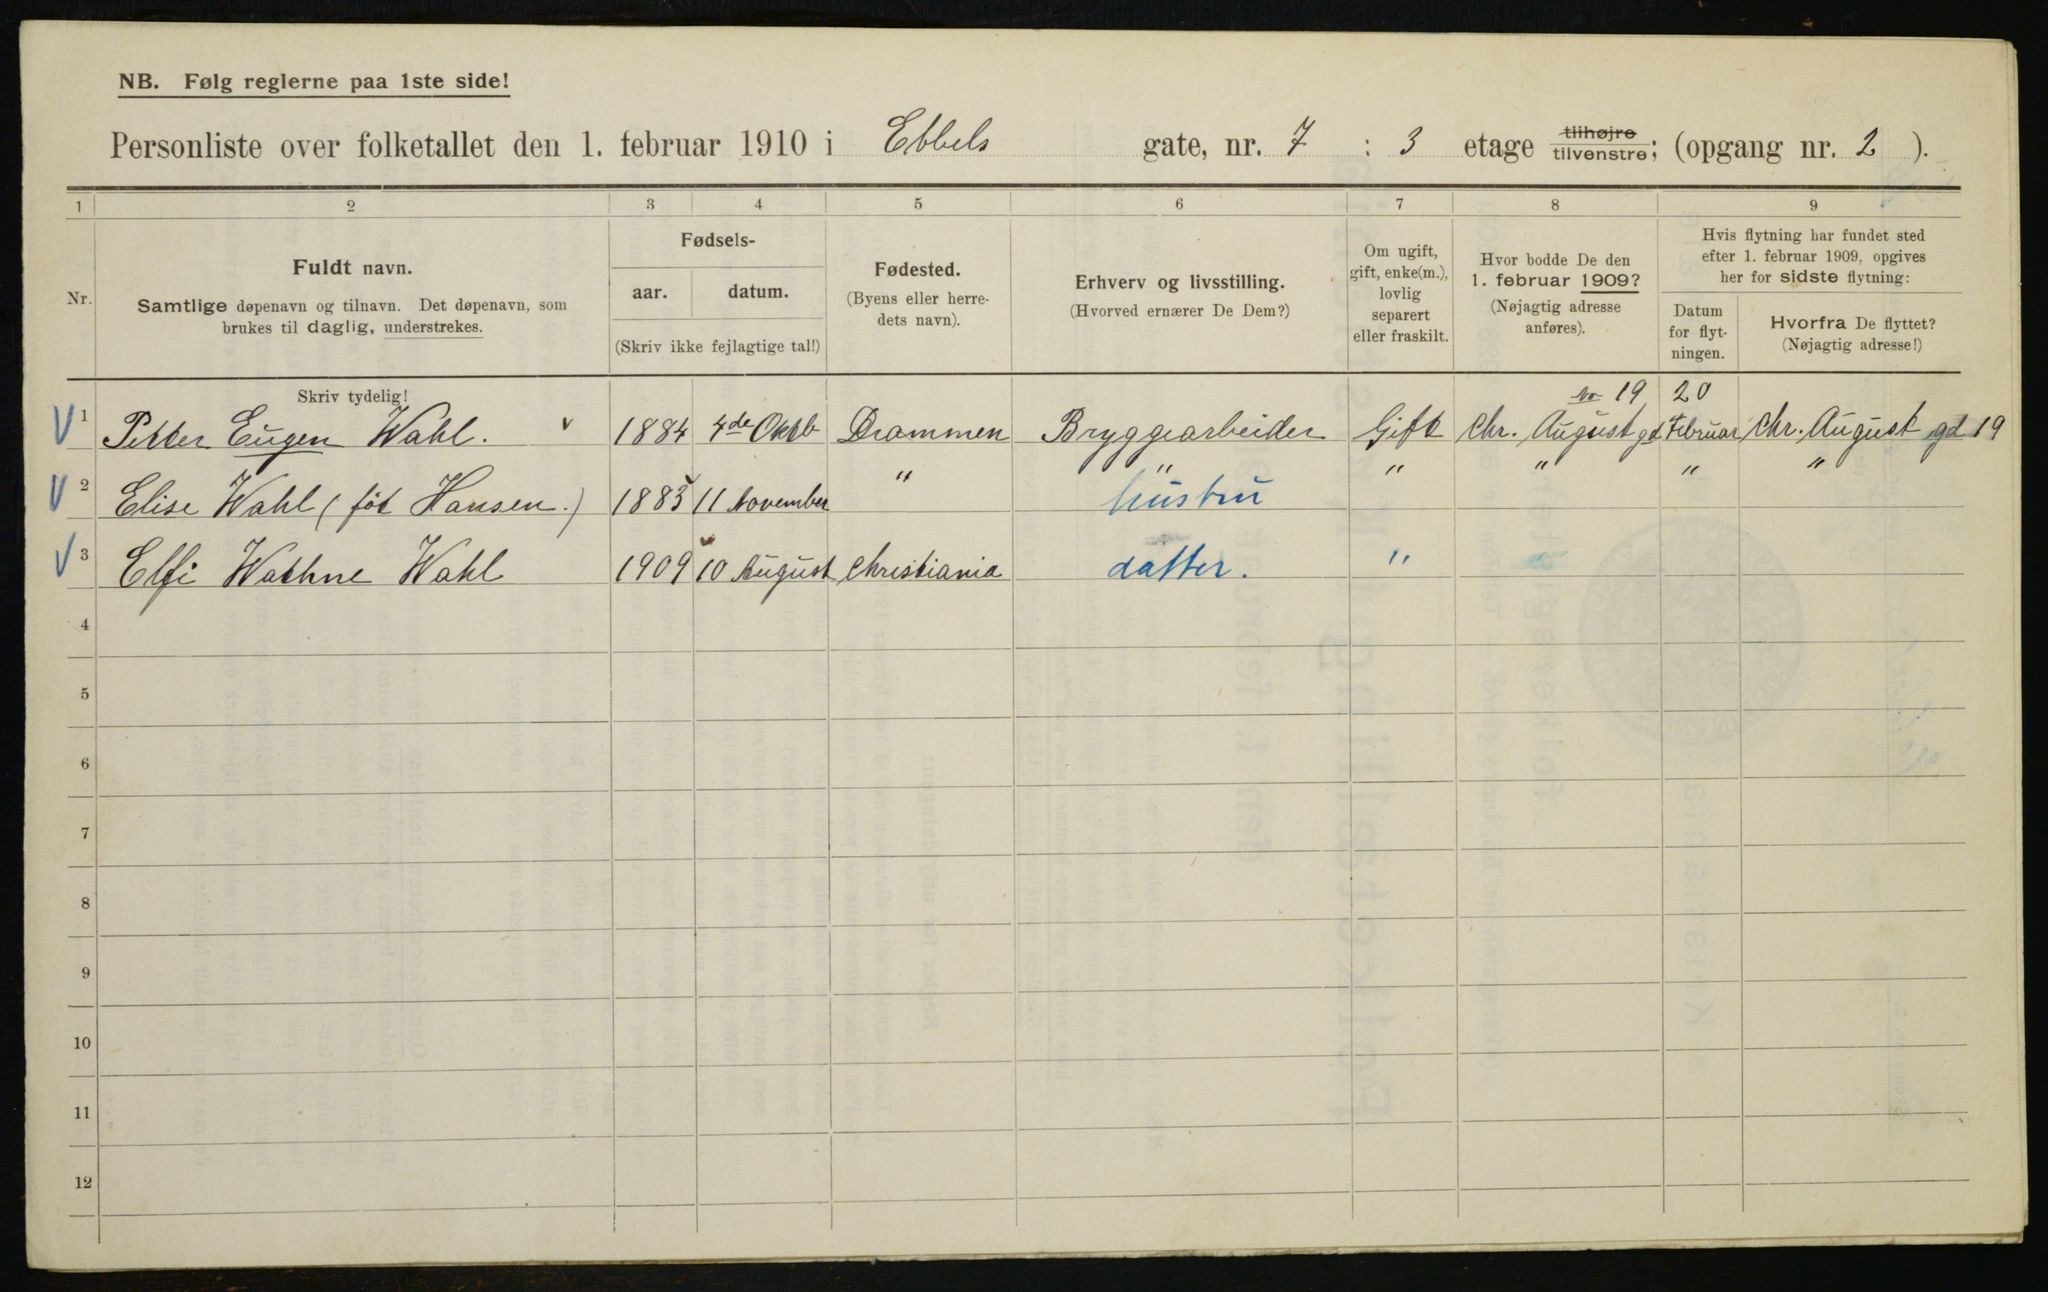 NB. Følg reglerne paa 1ste side!
Personliste over folketallet den 1. februar 1910 i Ebbels gate, nr. 7 : 3 etage tilhøjre tilvenstre; (opgang nr. 2 ).
1 2 3 4 5 6 7 8 9
Nr.
Fuldt navn.
Samtlige døpenavn og tilnavn. Det døpenavn, som
brukes til daglig, understrekes.
Fødsels-
aar. datum.
(Skriv ikke fejlagtige tal!)
Fødested.
(Byens eller herre-
dets navn).
Erhverv og livsstilling.
(Hvorved ernærer De Dem?)
Om ugift,
gift, enke(m.),
lovlig
separert
eller fraskilt.
Hvor bodde De den
1. februar 1909?
(Nøjagtig adresse
anføres).
Hvis flytning har fundet sted
efter 1. februar 1909, opgives
her for sidste flytning:
Datum
for flyt-
ningen.
Hvorfra De flyttet?
(Nøjagtig adresse!)
Skriv tydelig!
No 19 20
V 1 Petter Eugen Wahl. v 1884 4de Oktb Drammen Bryggearbeider Gift Chr. August gd Februar Chr. August gd 19
V 2 Elise Wahl (föt Hansen.) 1883 11 November " " hustru " " " "
V 3 Elfi Wathne Wahl 1909 10 August Christiania datter. "
4
5
6
7
8
9
10
11
12